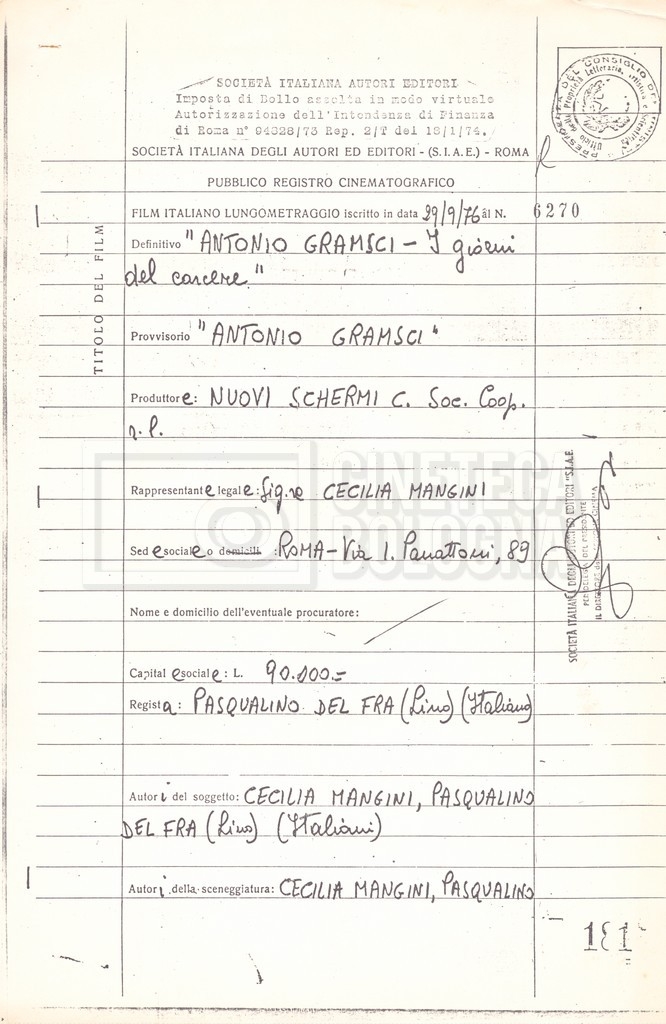 SOCIETÀ ITALIANA AUTORI EDITORI
Imposta di Bollo assolta in modo virtuale
Autorizzazione dell'Intendenza di Finanza
di Roma n° 94028/73 Rep. 2/T del 18/1/74.
SOCIETÀ ITALIANA DEGLI AUTORI ED EDITORI - (S.I.A.E.) - ROMA
PUBBLICO REGISTRO CINEMATOGRAFICO
FILM ITALIANO LUNGOMETRAGGIO iscritto in data 29/9/76 al N. 6270
TITOLO DEL FILM
Definitivo "ANTONIO GRAMSCI - I giorni
del carcere"
Provvisorio "ANTONIO GRAMSCI"
Produttore: NUOVI SCHERMI C. Soc. Coop.
r.l.
Rappresentante legale: Sig.ra CECILIA MANGINI
Sede sociale o domicili : ROMA - Via I. Panattoni, 89
Nome e domicilio dell'eventuale procuratore:
Capitale sociale: L. 90.000.-
Regista: PASQUALINO DEL FRA (Lino) (Italiano)
Autori del soggetto: CECILIA MANGINI, PASQUALINO
DEL FRA (Lino) (Italiani)
Autori della sceneggiatura: CECILIA MANGINI, PASQUALINO
181
PRESIDENZA DEL CONSIGLIO DEI MINISTRI
SOCIETÀ ITALIANA DEGLI AUTORI ED EDITORI "S.I.A.E.
PER DELEGA DEL PRESIDENTE
CINETECA
BOLOGNA